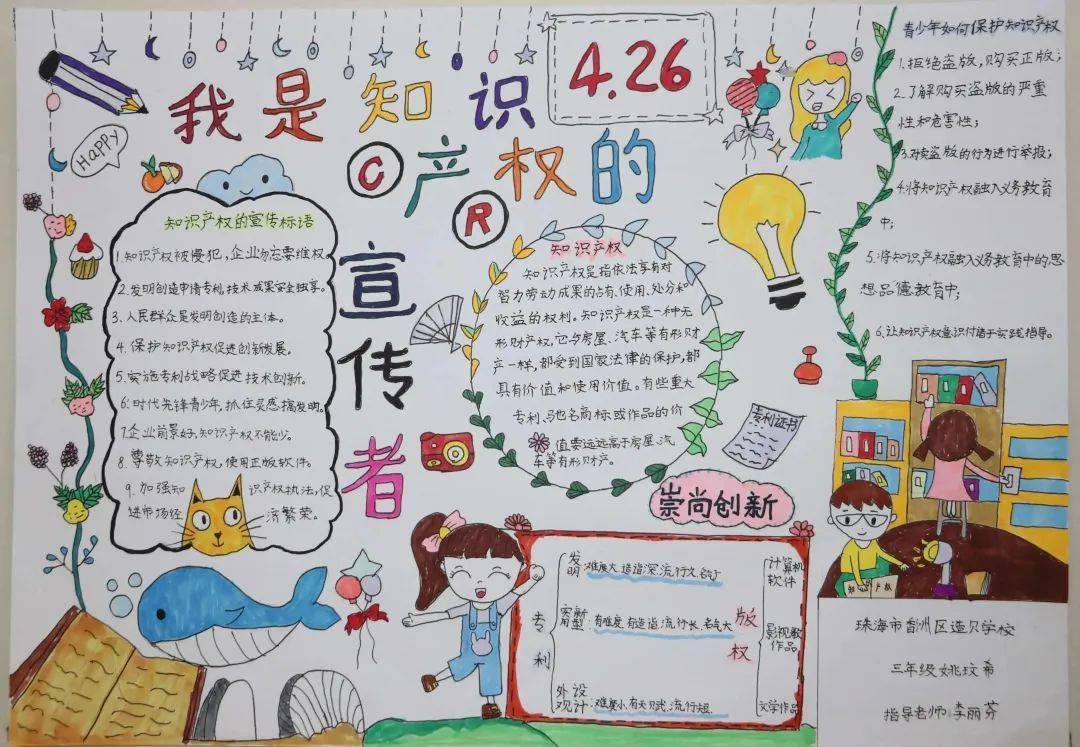 4.26
我是知识
产权的
宣传者
C
R
Happy
知识产权的宣传标语
1.知识产权被侵犯,企业勿忘要维权。
2.发明创造申请专利,技术成果安全独享。
3.人民群众是发明创造的主体。
4.保护知识产权促进创新发展。
5.实施专利战略促进技术创新。
6.时代先锋青少年,抓住灵感搞发明。
7.企业前景好,知识产权不能少。
8.尊敬知识产权,使用正版软件。
9.加强知识产权执法,促
进市场经济繁荣。
知识产权
知识产权是指依法享有对
智力劳动成果的占有、使用、处分和
收益的权利。知识产权是一种无
形财产权,它与房屋、汽车等有形财
产一样,都受到国家法律的保护,都
具有价值和使用价值。有些重大
专利、驰名商标或作品的价
值要远远高于房屋、汽
车等有形财产。
青少年如何保护知识产权
1.拒绝盗版,购买正版;
2.了解购买盗版的严重
性和危害性;
3.对卖盗版的行为进行举报;
4.将知识产权融入义务教育
中;
5.将知识产权融入义务教育中的思
想品德教育中;
6.让知识产权意识付诸于实践指导。
专利证书
崇尚创新
专利
发明:难度大,造诣深,流行久,名气
实用新型:有难度,有造诣,流行长,名气大
外观设计:难度小,有天赋,流行短
版权
计算机软件
影视歌作品
文学作品
知识产权
珠海市香洲区造贝学校
三年级 姚玟希
指导老师:李丽芬